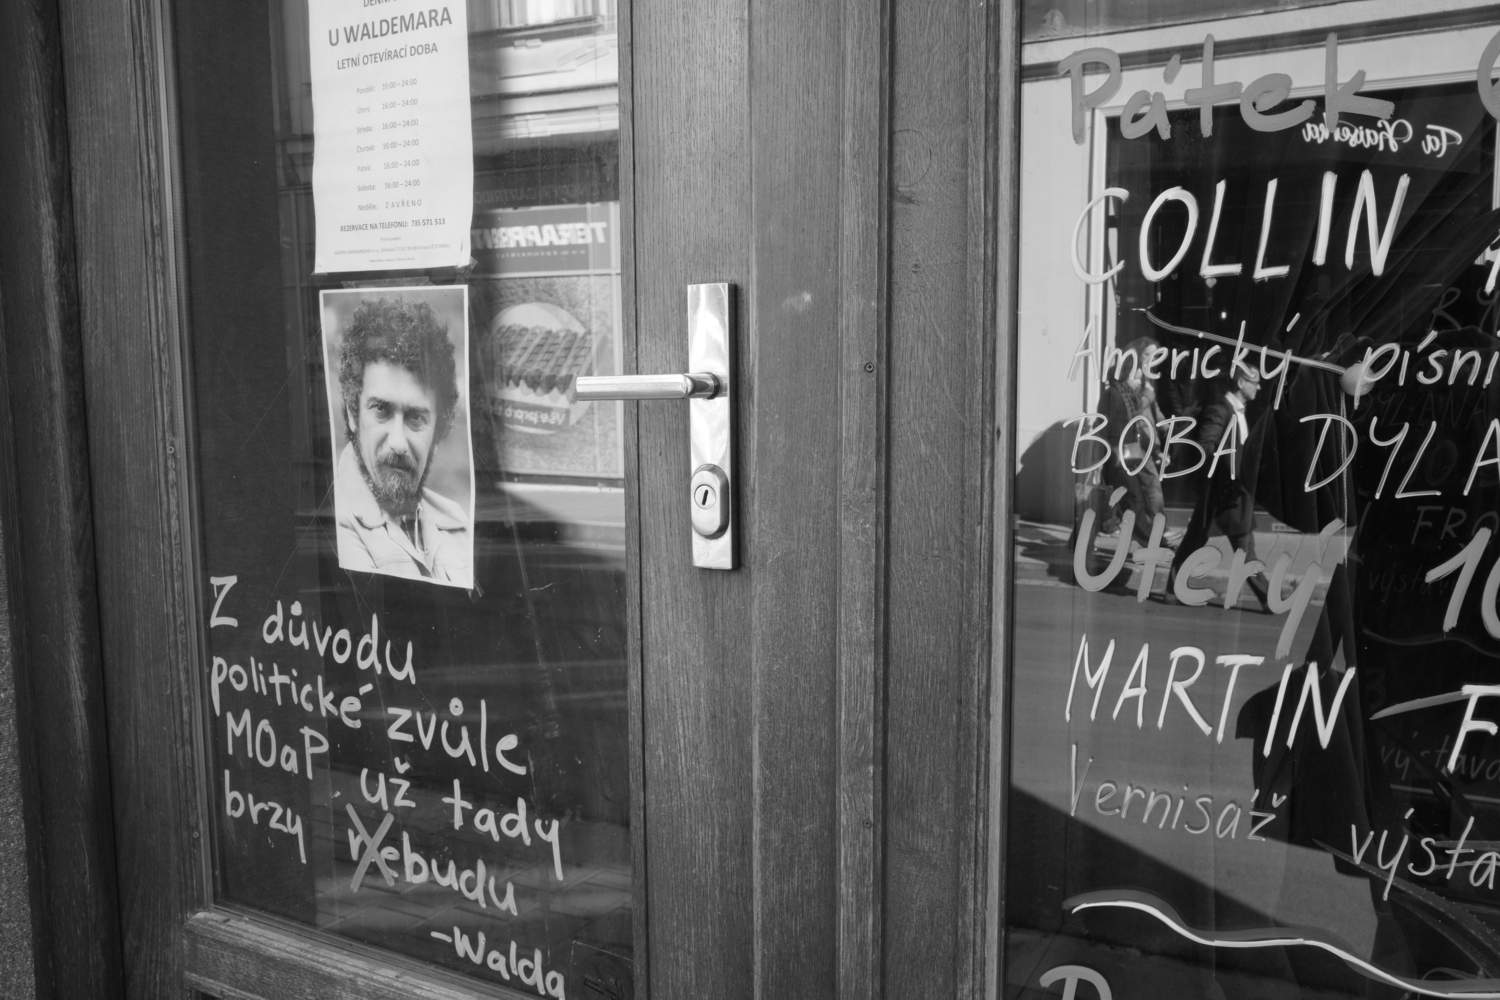 U WALDEMARA
LETNÍ OTEVÍRACÍ DOBA
Pondělí: 16:00 – 24:00
Úterý: 16:00 – 24:00
Středa: 16:00 – 24:00
Čtvrtek: 16:00 – 24:00
Pátek: 16:00 – 24:00
Sobota: 16:00 – 24:00
Neděle: ZAVŘENO
REZERVACE NA TELEFONU: 735 571 513
Z důvodu
politické zvůle
MOaP už tady
brzy nebudu
-Walda
TERAPRINT
Pátek
Ta Kaiserka
COLLIN
Americký písni
BOBA DYLA
Úterý 10
MARTIN F
Vernisáž výsta